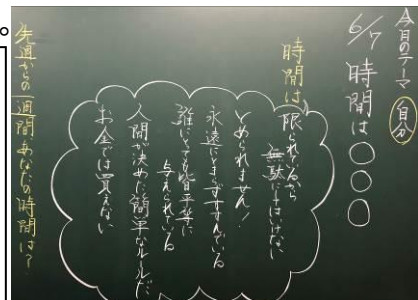 今日のテーマ 自分
6/7 時間は○○○
時間は
限られているから
無駄にしてはいけない
とめられません!
永遠にとまらずすすんでいる
誰にとっても皆平等に
与えられている
人間が決めた簡単なルールだ
お金では買えない
来週からの一週間あなたの時間は?